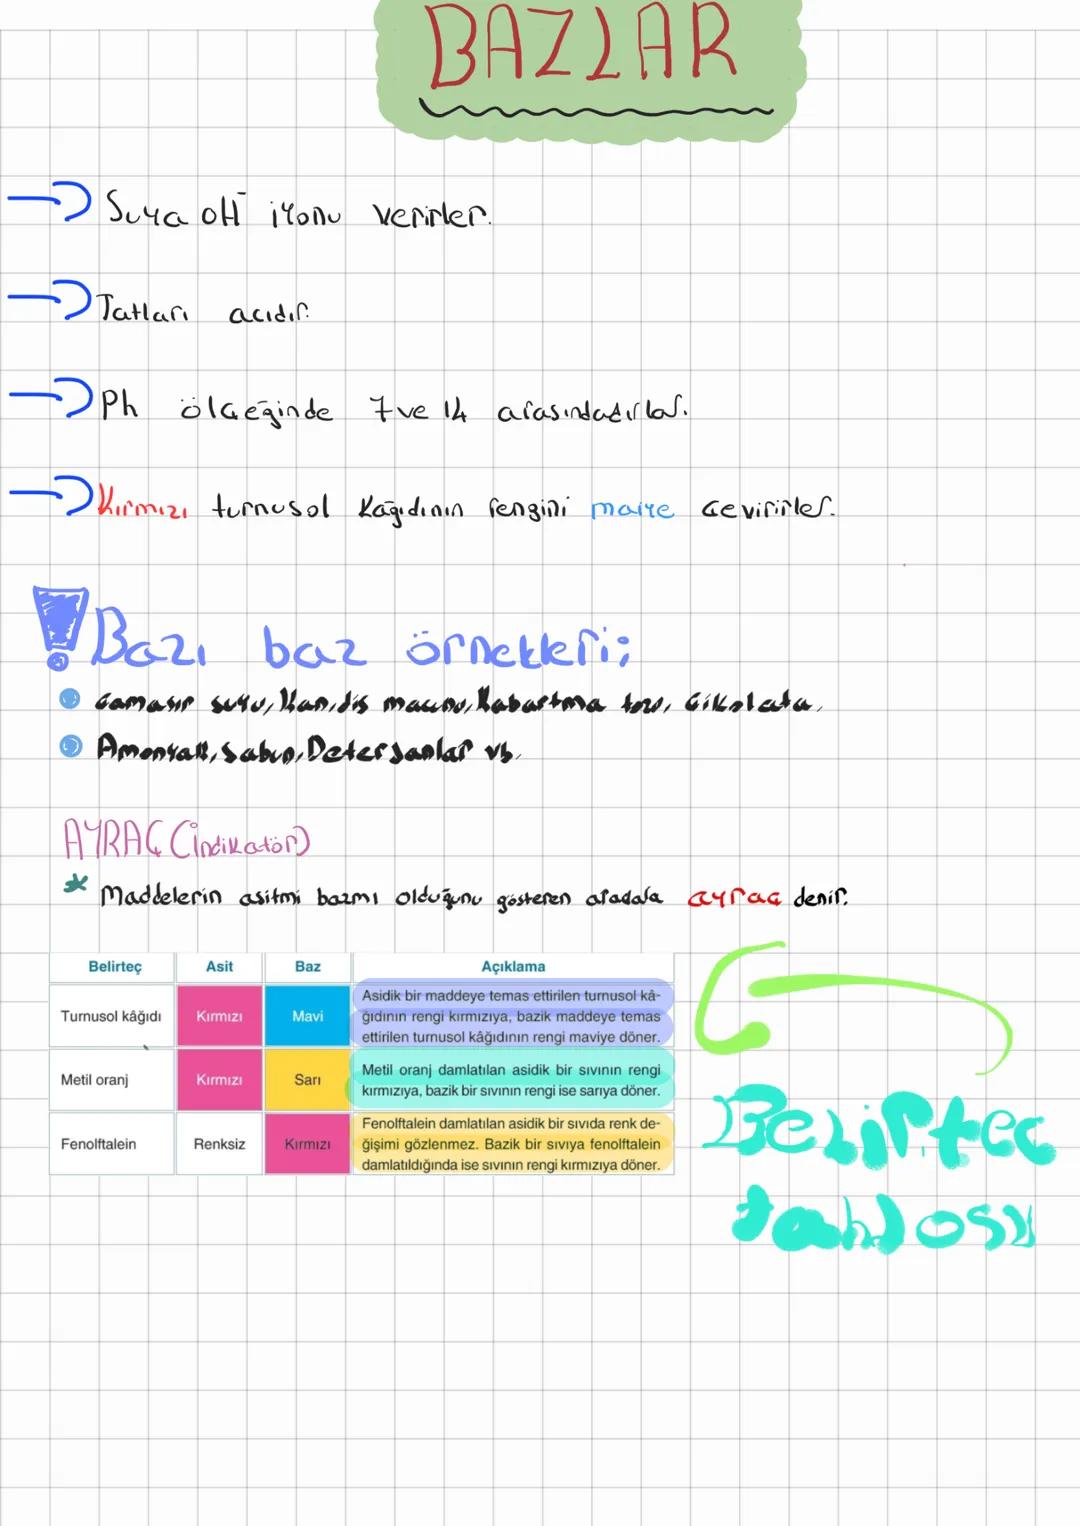 BAZLAR
Suya OH⁻ iyonu verirler.
Tatları acıdır.
Ph ölçeğinde 7 ve 14 arasındadırlar.
Kırmızı turnusol kağıdının rengini maiye çevirirler.
Bazı baz örnekleri;
Çamaşır suyu, Kan, diş macunu, Kabartma tozu, Çikolata,
Amonyak, Sabun, Deterjanlar vb.
AYRAÇ (indikatör)
* Maddelerin asitmi bazmı olduğunu gösteren aradala ayraç denir.
Belirteç Asit Baz Açıklama
Turnusol kâğıdı Kırmızı Mavi
Asidik bir maddeye temas ettirilen turnusol kâ-
ğıdının rengi kırmızıya, bazik maddeye temas
ettirilen turnusol kâğıdının rengi maviye döner.
Metil oranj Kırmızı Sarı
Metil oranj damlatılan asidik bir sıvının rengi
kırmızıya, bazik bir sıvının rengi ise sarıya döner.
Fenolftalein Renksiz Kırmızı
Fenolftalein damlatılan asidik bir sıvıda renk de-
ğişimi gözlenmez. Bazik bir sıvıya fenolftalein
damlatıldığında ise sıvının rengi kırmızıya döner.
Belirteç
tablosu